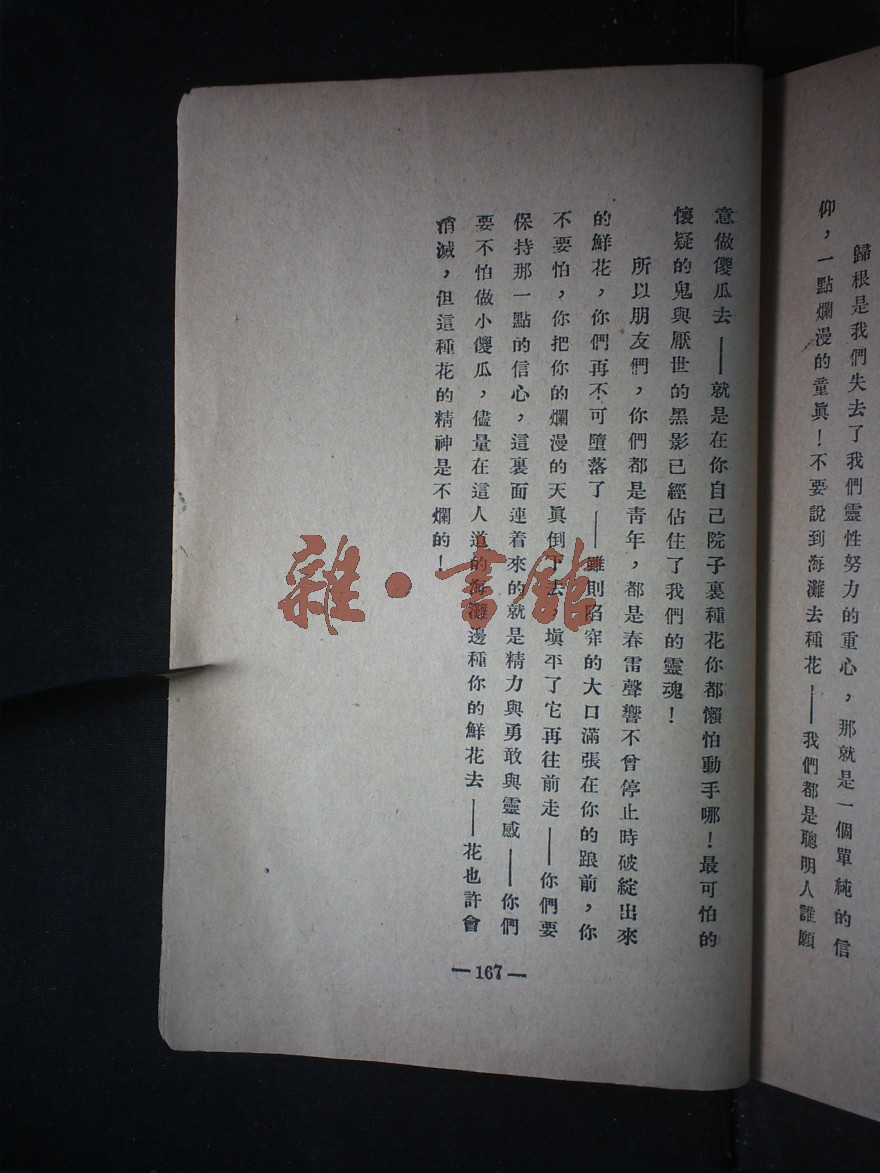 歸根是我們失去了我們靈性努力的重心，那就是一個單純的信
仰，一點爛漫的童眞！不要說到海灘去種花——我們都是聰明人誰願
意做傻瓜去——就是在你自己院子裏種花你都懶怕動手哪！最可怕的
懷疑的鬼與厭世的黑影已經佔住了我們的靈魂！
所以朋友們，你們都是靑年，都是春雷聲響不曾停止時破綻出來
的鮮花，你們再不可墮落了——雖則陷穽的大口滿張在你的跟前，你
不要怕，你把你的爛漫的天眞倒下去，塡平了它再往前走——你們要
保持那一點的信心，這裏面連着來的就是精力與勇敢與靈感——你們
要不怕做小傻瓜，儘量在這人道的海灘邊種你的鮮花去——花也許會
消滅，但這種花的精神是不爛的！
—167—
雜·書館